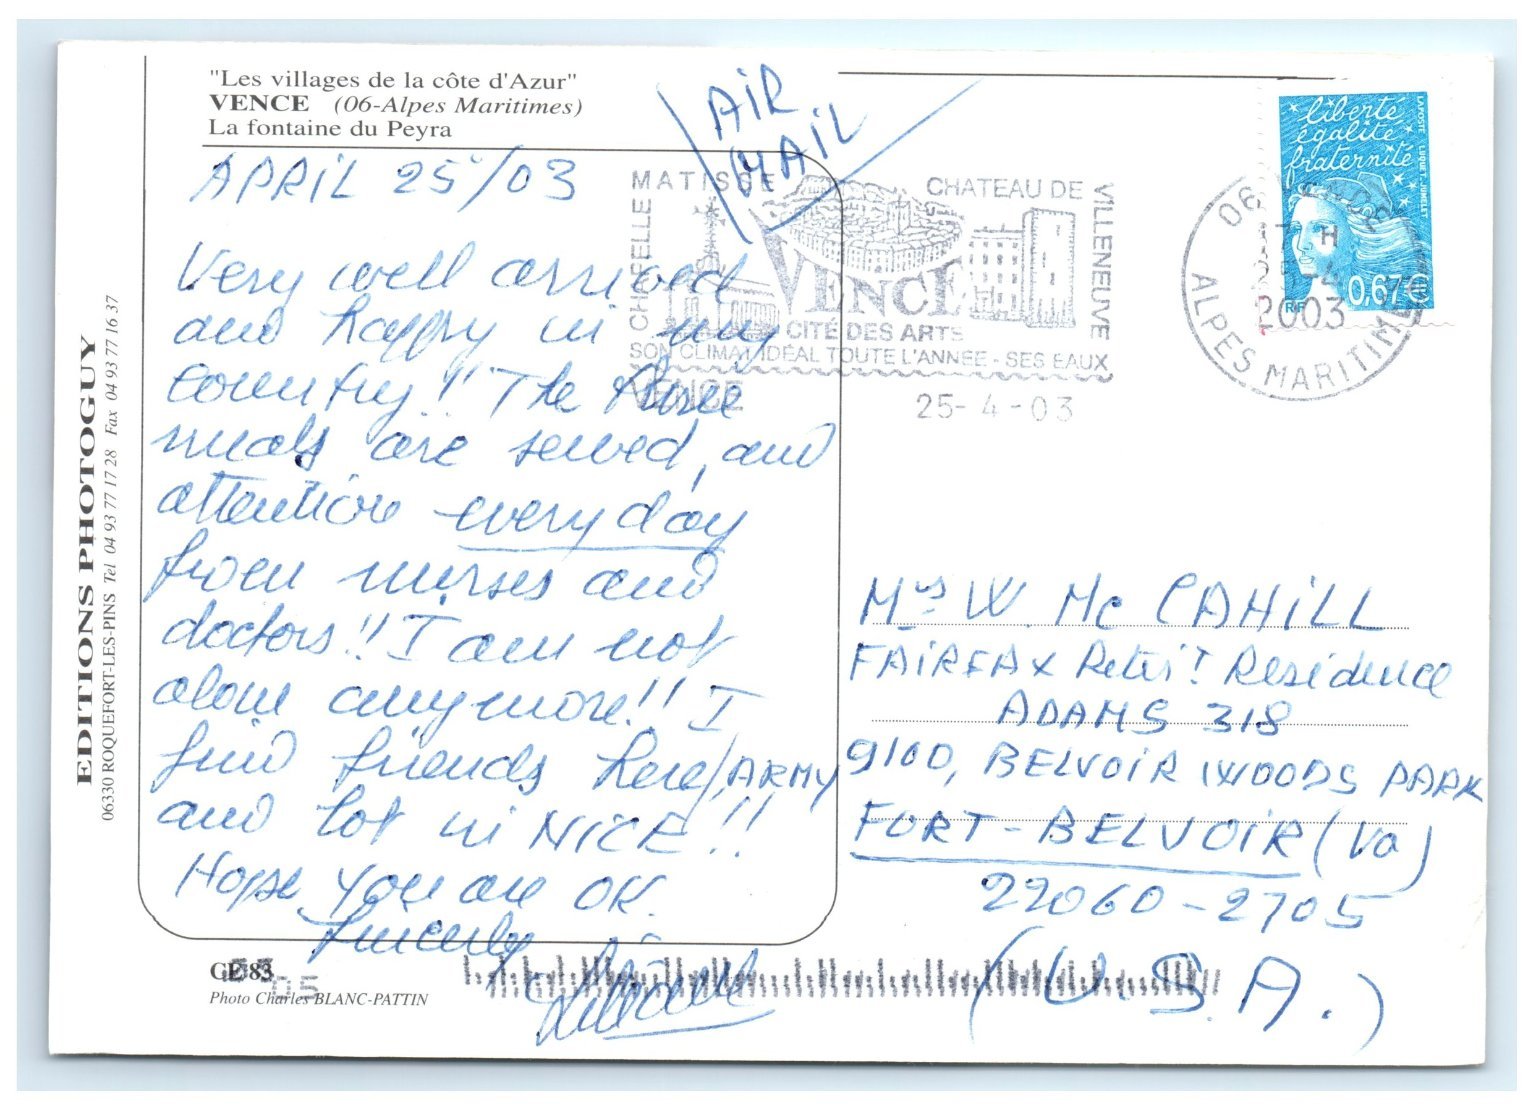 "Les villages de la côte d'Azur"
VENCE (06-Alpes Maritimes)
La fontaine du Peyra
AIR
MAIL
APRIL 25/03
Very well arrived
and happy in my
country!! The three
meals are served, and
attention every day
from nurses and
doctors!! I am not
alone anymore!! I
find friends here/ARMY
and lot in NICE!!
Hope you are OK.
Sincerely
EDITIONS PHOTOGUY
06330 ROQUEFORT-LES-PINS Tel 04 93 77 17 28 Fax 04 93 77 16 37
GE 83
05
Photo Charles BLANC-PATTIN
CHAPELLE MATISSE
CHATEAU DE VILLENEUVE
VENCE
CITÉ DES ARTS
SON CLIMAT IDÉAL TOUTE L'ANNÉE - SES EAUX
VENCE
25- 4 - 03
liberté
égalité
fraternité
LA POSTE LUQUET-JUMELET
RF 0,67€
06 VENCE
17 H
25-4
2003
ALPES MARITIMES
Mrs W. Mc CAHILL
FAIRFAX Retirt Residence
ADAMS 318
9100, BELVOIR WOODS PARK
FORT-BELVOIR (Va)
22060-2705
(U.S.A.)